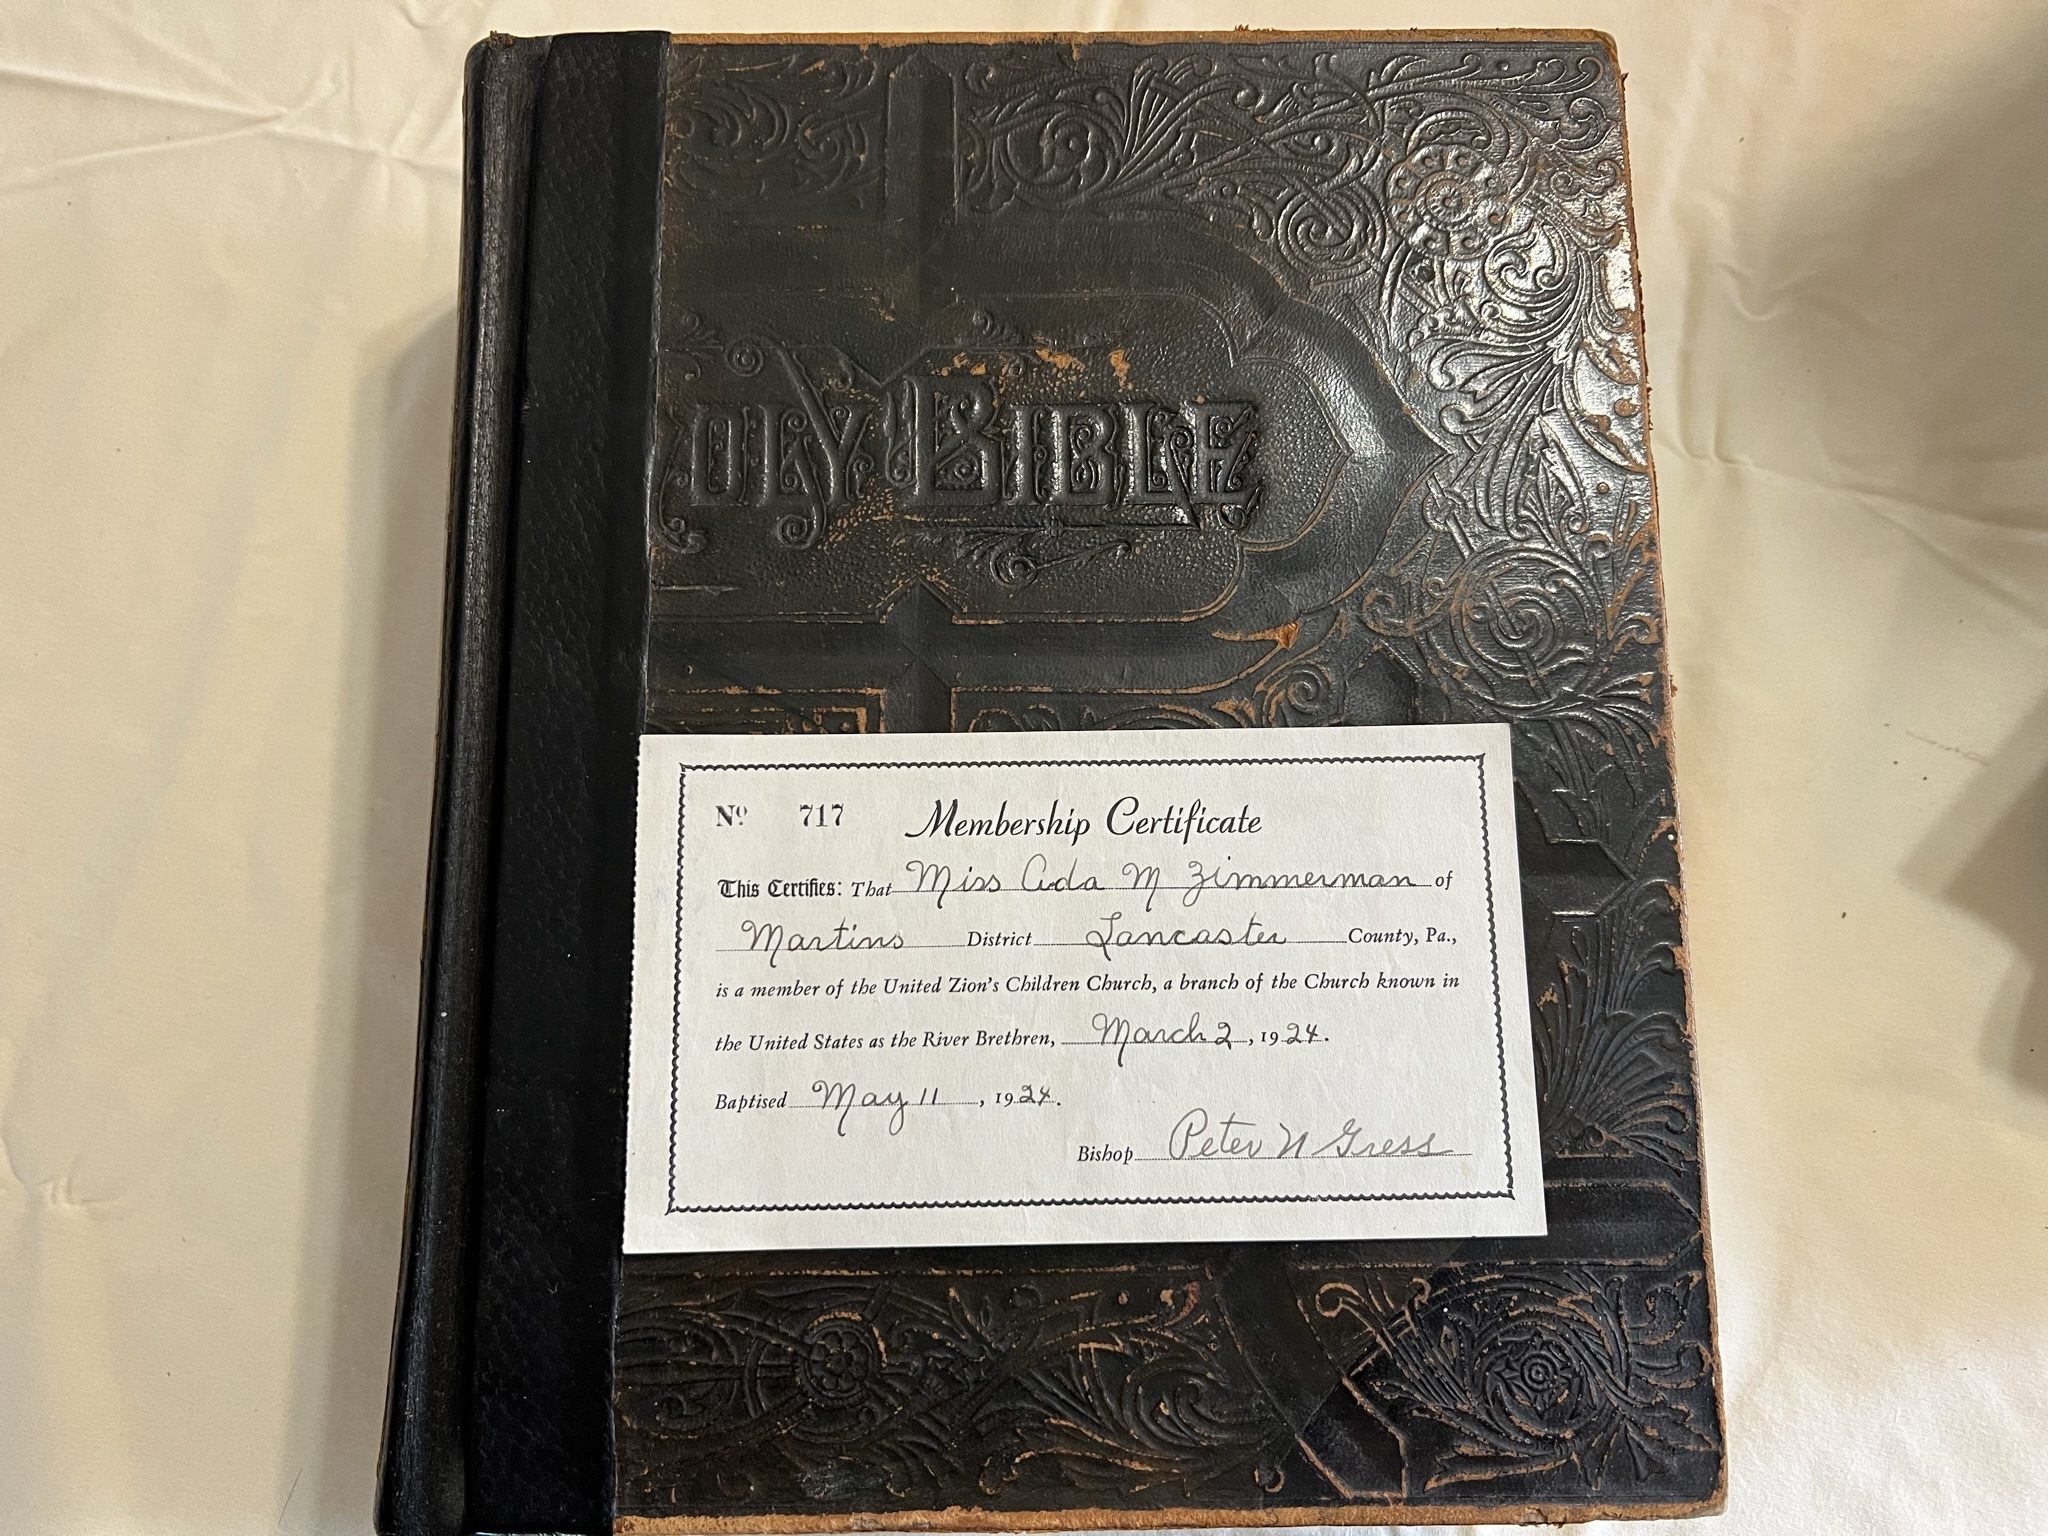 OLY BIBLE
No 717 Membership Certificate
This Certifies: That Miss Ada M Zimmerman of
Martins District Lancaster County, Pa.,
is a member of the United Zion's Children Church, a branch of the Church known in
the United States as the River Brethren, March 2, 1924.
Baptised May 11, 1924.
Bishop Peter N Gress